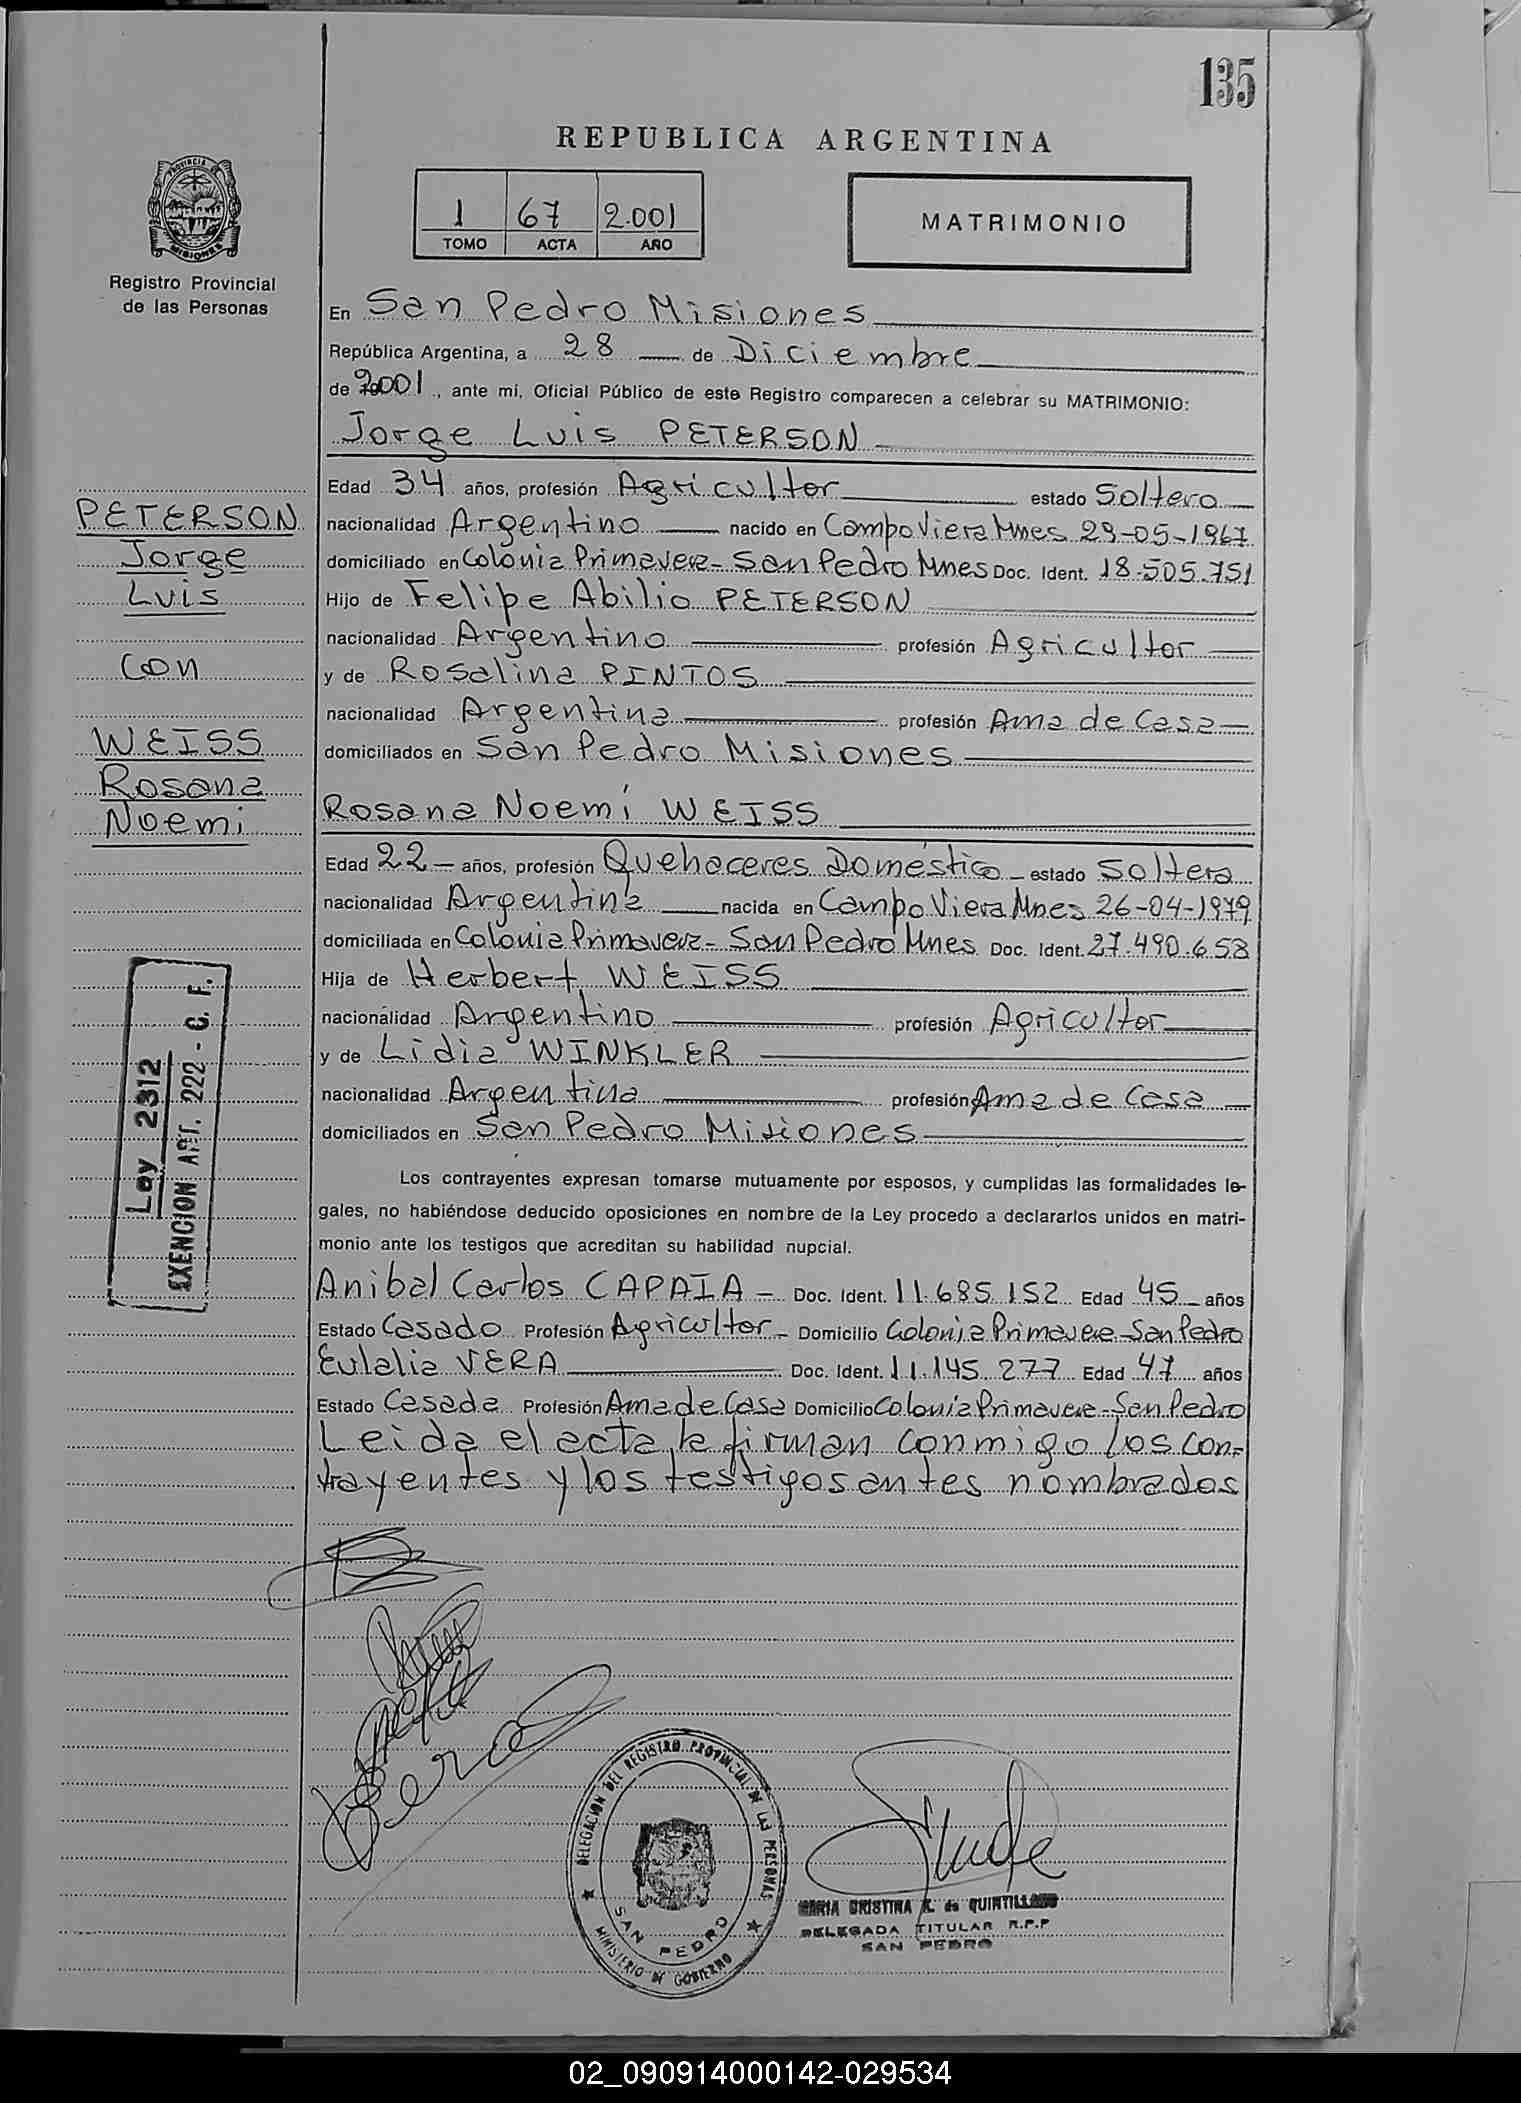 135
REPUBLICA ARGENTINA
PROVINCIA DE
MISIONES
Registro Provincial
de las Personas
1 67 2.001
TOMO ACTA AÑO
MATRIMONIO
En San Pedro Misiones
República Argentina, a 28 de Diciembre
de 2001, ante mí, Oficial Público de este Registro comparecen a celebrar su MATRIMONIO:
Jorge Luis PETERSON
Edad 34 años, profesión Agricultor estado Soltero
nacionalidad Argentino nacido en Campo Viera Mnes 29-05-1967
domiciliado en Colonia Primavera - San Pedro Mnes Doc. Ident. 18.505.751
Hijo de Felipe Abilio PETERSON
nacionalidad Argentino profesión Agricultor
y de Rosalina PINTOS
nacionalidad Argentina profesión Ama de Casa
domiciliados en San Pedro Misiones
PETERSON
Jorge
Luis
con
WEISS
Rosana
Noemi
Rosana Noemí WEISS
Edad 22 - años, profesión Quehaceres Doméstico - estado Soltera
nacionalidad Argentina nacida en Campo Viera Mnes 26-04-1979
domiciliada en Colonia Primavera - San Pedro Mnes Doc. Ident. 27.490.658
Hija de Herbert WEISS
nacionalidad Argentino profesión Agricultor
y de Lidia WINKLER
nacionalidad Argentina profesión Ama de Casa
domiciliados en San Pedro Misiones
Ley 2312
EXENCION ART. 222 - C. F.
Los contrayentes expresan tomarse mutuamente por esposos, y cumplidas las formalidades le-
gales, no habiéndose deducido oposiciones en nombre de la Ley procedo a declararlos unidos en matri-
monio ante los testigos que acreditan su habilidad nupcial.
Anibal Carlos CAPAIA - Doc. Ident. 11.685.152 Edad 45 años
Estado Casado Profesión Agricultor - Domicilio Colonia Primavera - San Pedro
Eulalia VERA Doc. Ident. 11.145.277 Edad 47 años
Estado Casada Profesión Ama de Casa Domicilio Colonia Primavera - San Pedro
Leida el acta, la firman conmigo los con-
trayentes y los testigos antes nombrados
DELEGACION DEL REGISTRO PROVINCIAL DE LAS PERSONAS
SAN PEDRO
MINISTERIO DE GOBIERNO
MARIA CRISTINA R. de QUINTILLANO
DELEGADA TITULAR R.P.P
SAN PEDRO
02_090914000142-029534